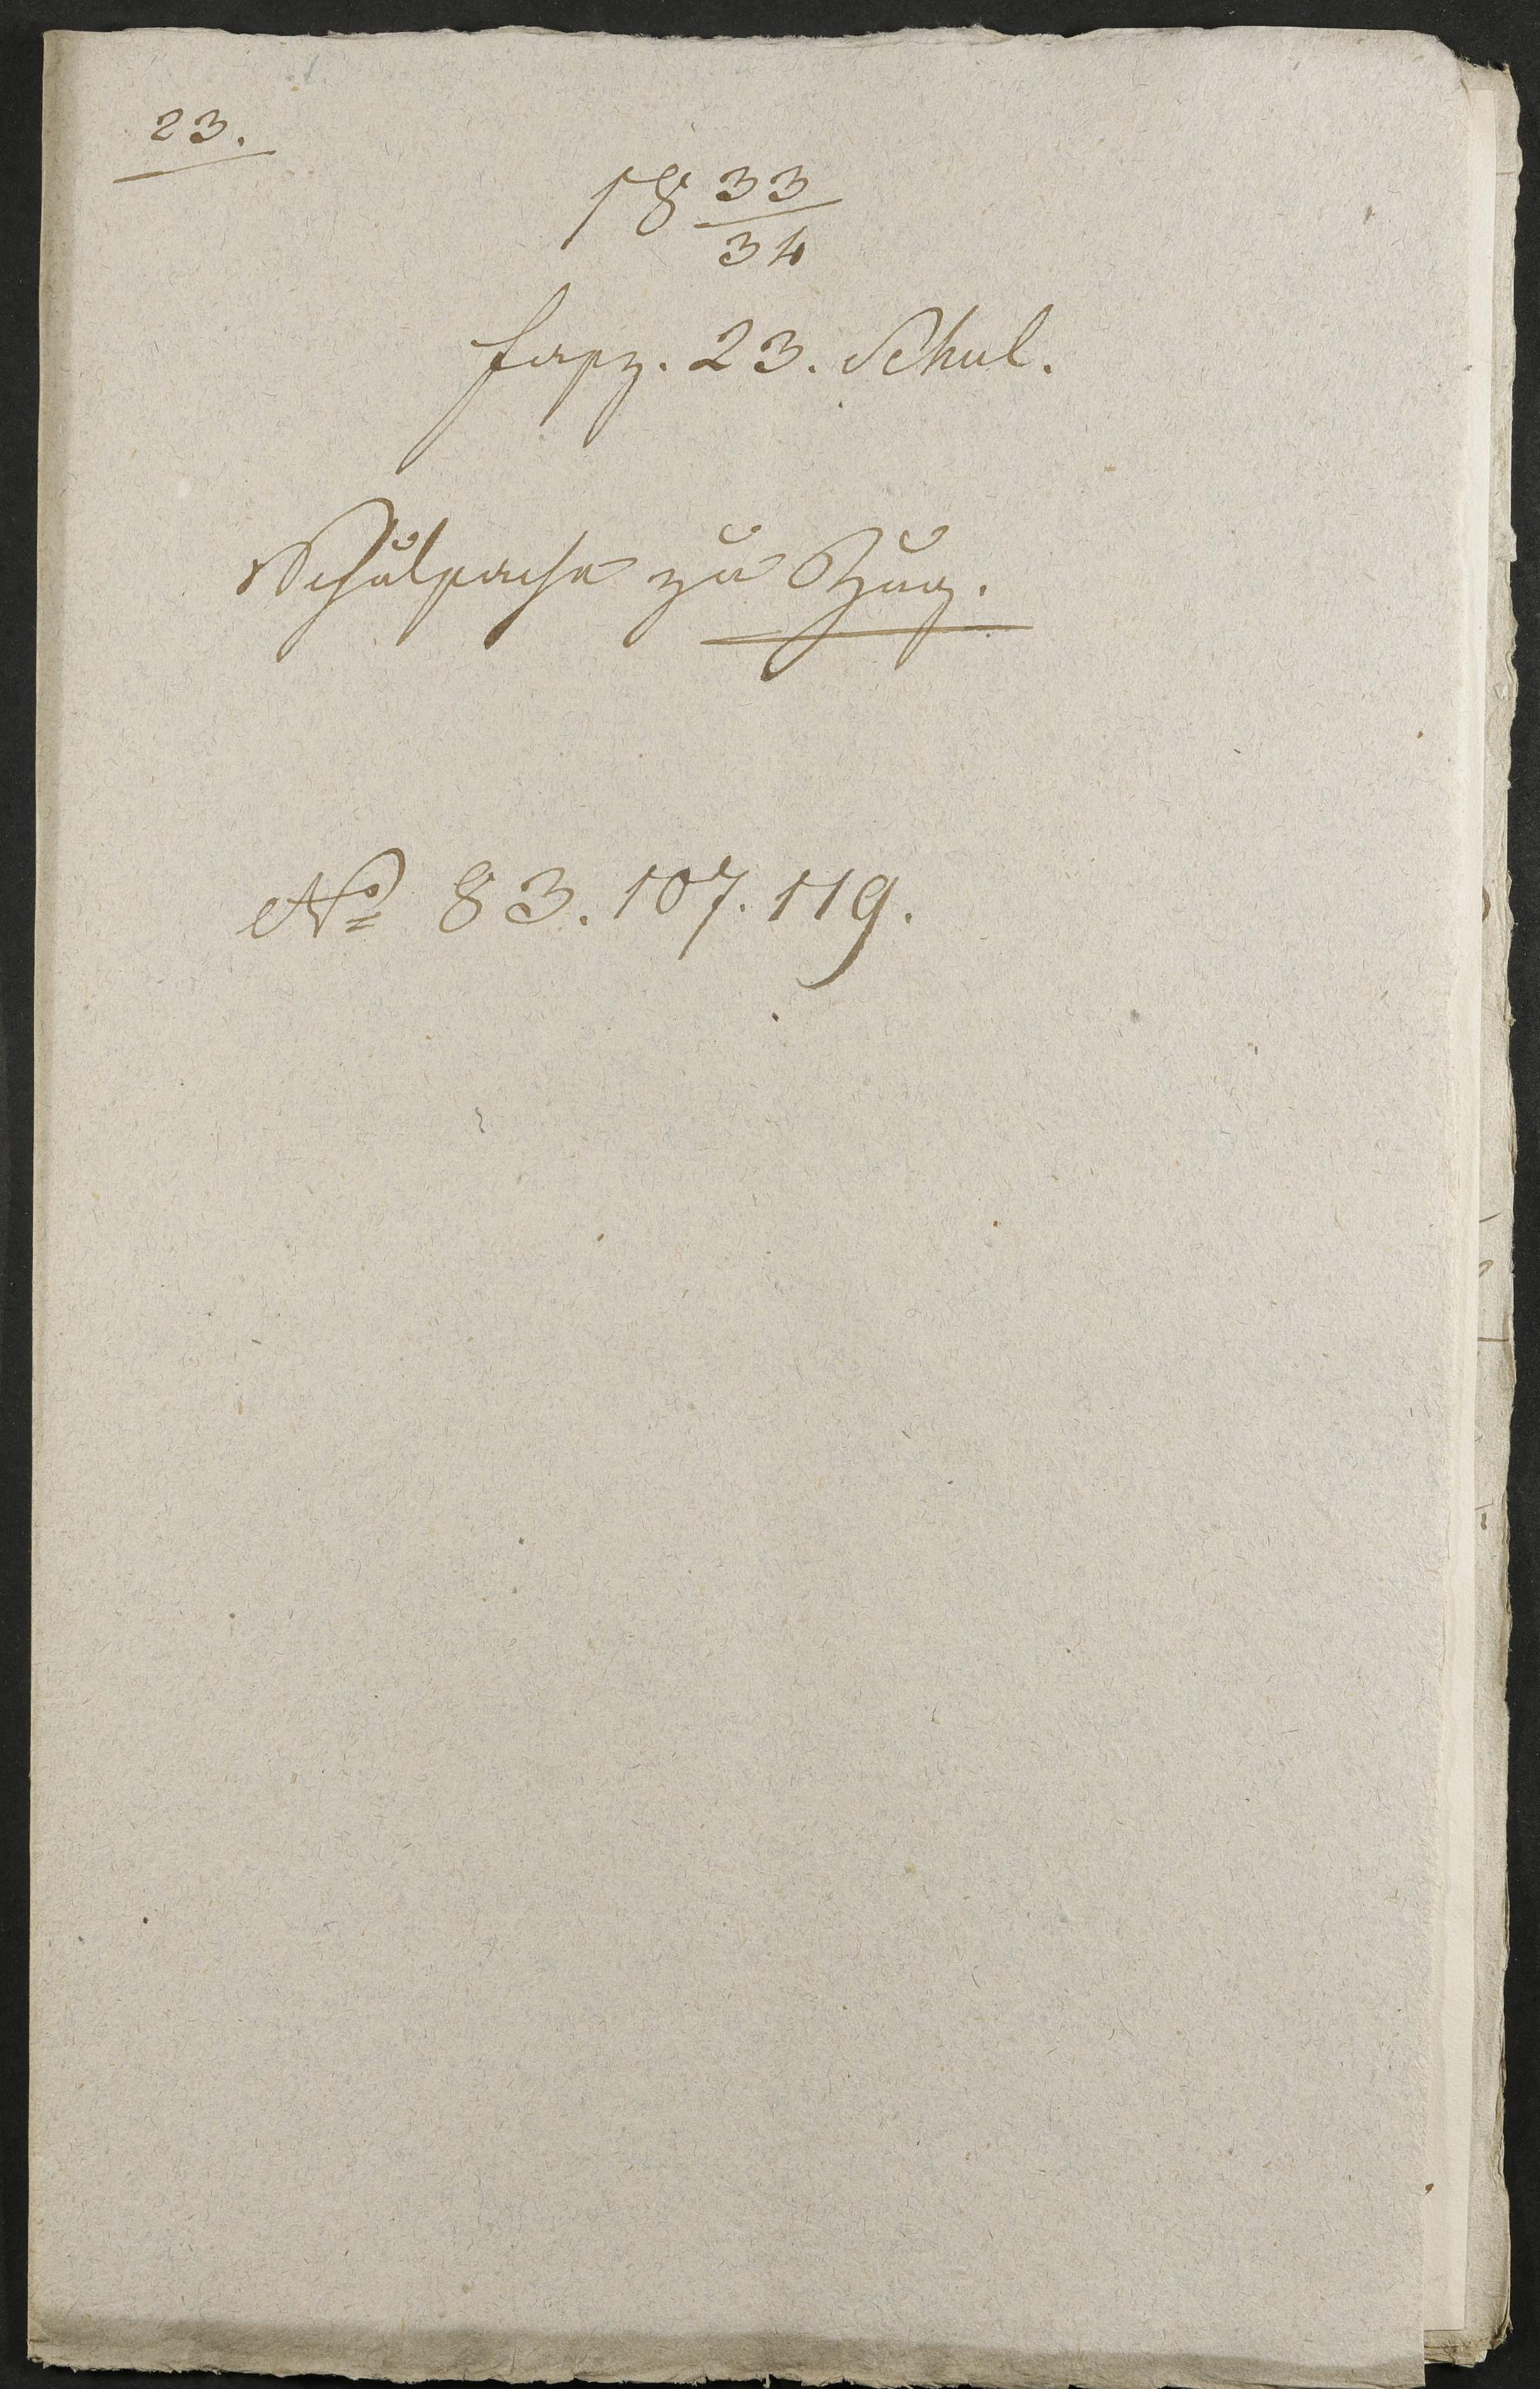 23.
18 33/34
fasz. 23. Schul.
Schulsache zu Zug.
No 83. 107. 119.